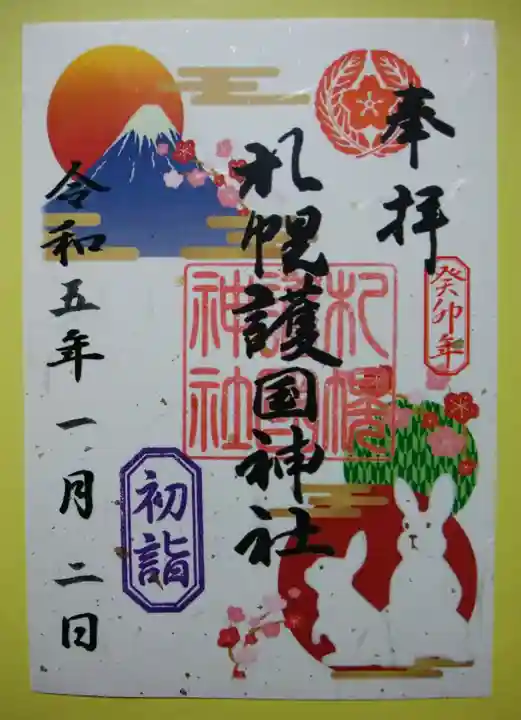 奉拝
癸卯年
札幌護国神社
札幌
護國
神社
初詣
令和五年一月二日